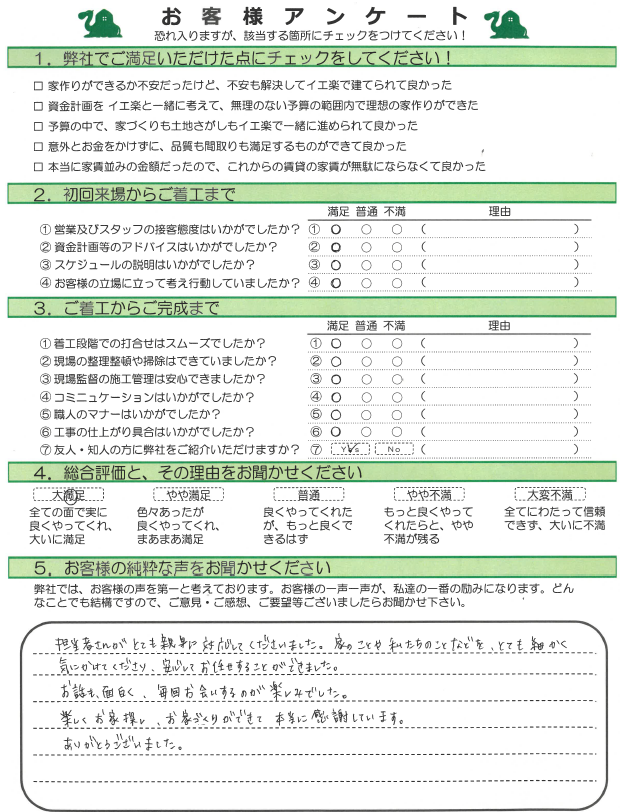 お客様アンケート
恐れ入りますが、該当する箇所にチェックをつけてください！
1．弊社でご満足いただけた点にチェックをしてください！
□ 家作りができるか不安だったけど、不安も解決してイエ楽で建てられて良かった
□ 資金計画を イエ楽と一緒に考えて、無理のない予算の範囲内で理想の家作りができた
□ 予算の中で、家づくりも土地さがしもイエ楽で一緒に進められて良かった
□ 意外とお金をかけずに、品質も間取りも満足するものができて良かった
□ 本当に家賃並みの金額だったので、これからの賃貸の家賃が無駄にならなくて良かった
2．初回来場からご着工まで
満足 普通 不満 理由
①営業及びスタッフの接客態度はいかがでしたか？ ① ○ ○ ○ （ ）
②資金計画等のアドバイスはいかがでしたか？ ② ○ ○ ○ （ ）
③スケジュールの説明はいかがでしたか？ ③ ○ ○ ○ （ ）
④お客様の立場に立って考え行動していましたか？ ④ ○ ○ ○ （ ）
3．ご着工からご完成まで
満足 普通 不満 理由
①着工段階での打合せはスムーズでしたか？ ① ○ ○ ○ （ ）
②現場の整理整頓や掃除はできていましたか？ ② ○ ○ ○ （ ）
③現場監督の施工管理は安心できましたか？ ③ ○ ○ ○ （ ）
④コミニュケーションはいかがでしたか？ ④ ○ ○ ○ （ ）
⑤職人のマナーはいかがでしたか？ ⑤ ○ ○ ○ （ ）
⑥工事の仕上がり具合はいかがでしたか？ ⑥ ○ ○ ○ （ ）
⑦友人・知人の方に弊社をご紹介いただけますか？ ⑦ Yes No
4．総合評価と、その理由をお聞かせください
大満足 やや満足 普通 やや不満 大変不満
全ての面で実に 色々あったが 良くやってくれた もっと良くやって 全てにわたって信頼
良くやってくれ、 良くやってくれ、 が、もっと良くで くれたらと、やや できず、大いに不満
大いに満足 まあまあ満足 きるはず 不満が残る
5．お客様の純粋な声をお聞かせください
弊社では、お客様の声を第一と考えております。お客様の一声一声が、私達の一番の励みになります。どん
なことでも結構ですので、ご意見・ご感想、ご要望等ございましたらお聞かせ下さい。
担当者さんがとても親身に対応してくださいました。家のことや私たちのことなどを、とても細かく
気にかけてくださり、安心してお任せすることができました。
お話も面白く、毎回お会いするのが楽しみでした。
楽しくお家探し、お家づくりができて本当に感謝しています。
ありがとうございました。